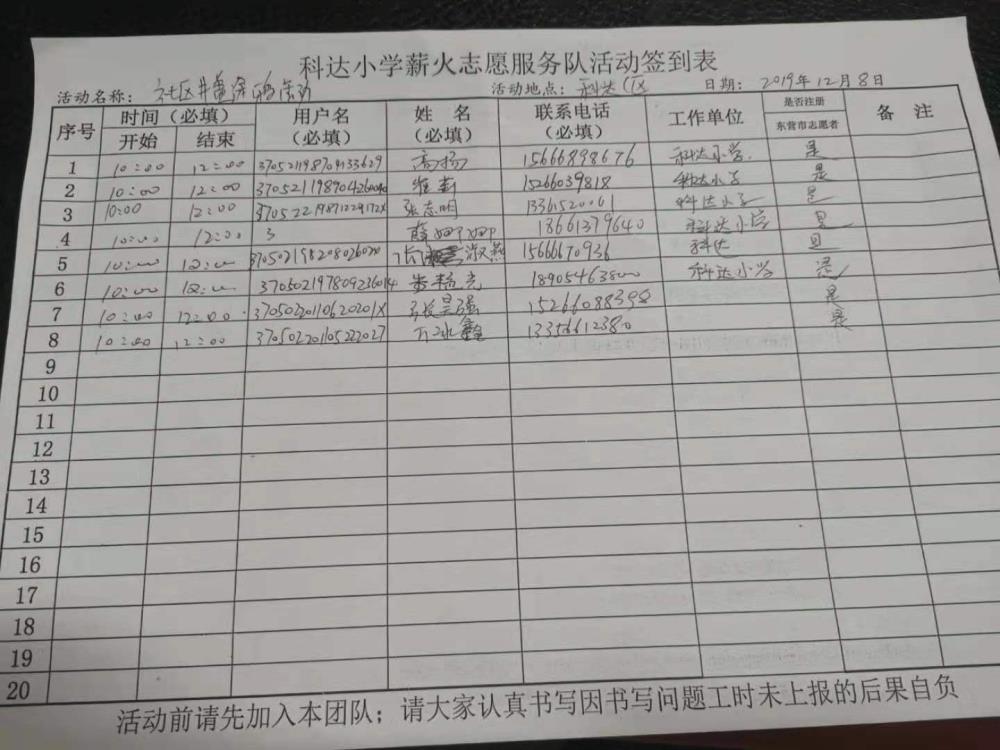 科达小学薪火志愿服务队活动签到表
活动名称： 社区井盖涂鸦活动 活动地点： 科达 日期： 2019年12月8日
序号 时间（必填） 开始 结束 用户名（必填） 姓 名（必填） 联系电话（必填） 工作单位 是否注册东营市志愿者 备 注
1 10:00 12:00 370521198709133629 高扬 15666898676 科达小学 是
2 10:00 12:00 15266039818 科达小学 是
3 10:00 12:00 37052219871229172X 张志明 科达小学 是
4 10:00 12:00 3 薛卿卿 18661379640 科达小学 是
5 10:00 12:00 370502198208026020 淑燕 15666670936 科达 是
6 10:00 12:00 370502197809236014 李福亮 18905463800 科达小学 是
7 10:00 12:00 37050220110620201X 张昊强 15266088398 是
8 10:00 12:00 370502201105222027 冰鑫 是
9
10
11
12
13
14
15
16
17
18
19
20
活动前请先加入本团队；请大家认真书写因书写问题工时未上报的后果自负